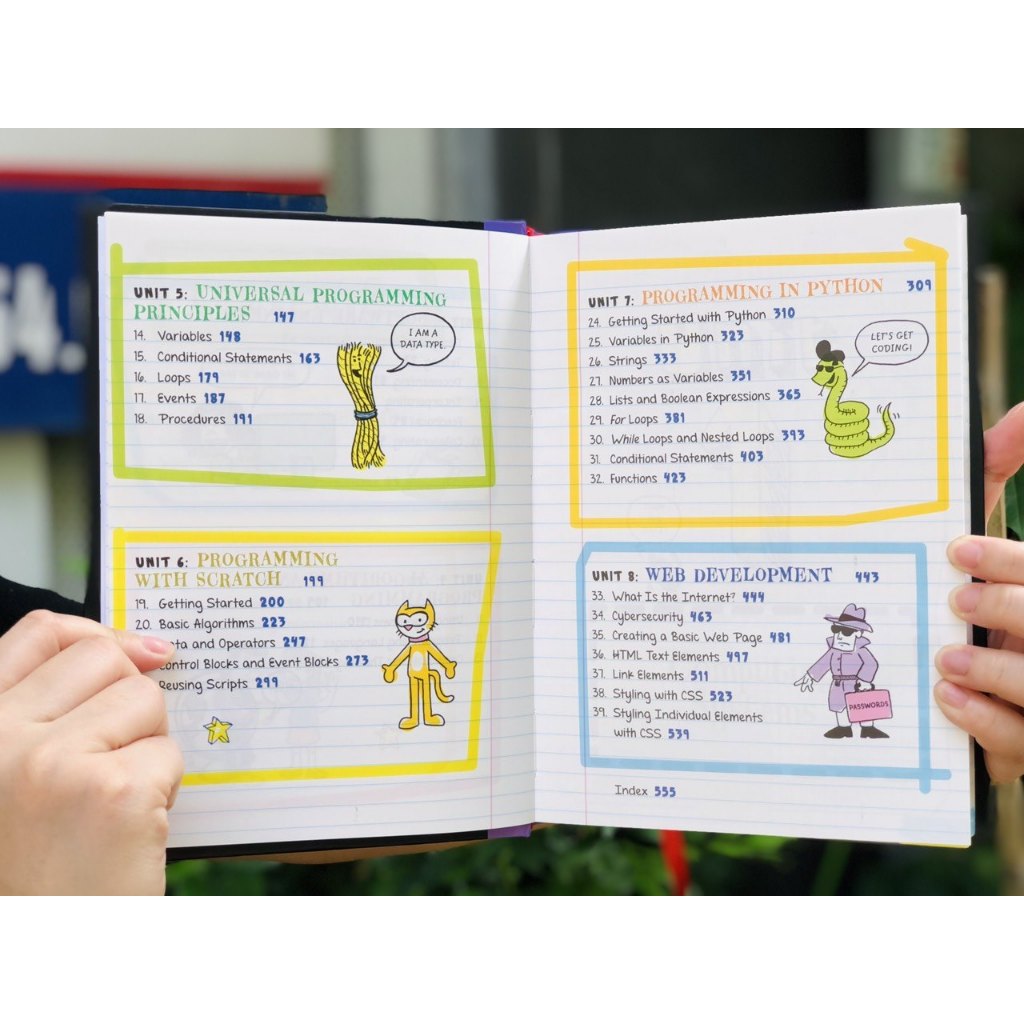 UNIT 5: UNIVERSAL PROGRAMMING
PRINCIPLES 147
14. Variables 148
15. Conditional Statements 163
16. Loops 179
17. Events 187
18. Procedures 191
I AM A
DATA TYPE.
UNIT 6: PROGRAMMING
WITH SCRATCH 199
19. Getting Started 200
20. Basic Algorithms 223
and Operators 247
Blocks and Event Blocks 273
Scripts 299
UNIT 7: PROGRAMMING IN PYTHON 309
24. Getting Started with Python 310
25. Variables in Python 323
26. Strings 333
27. Numbers as Variables 351
28. Lists and Boolean Expressions 365
29. For Loops 381
30. While Loops and Nested Loops 393
31. Conditional Statements 403
32. Functions 423
LET'S GET
CODING!
UNIT 8: WEB DEVELOPMENT 443
33. What Is the Internet? 444
34. Cybersecurity 463
35. Creating a Basic Web Page 481
36. HTML Text Elements 497
37. Link Elements 511
38. Styling with CSS 523
39. Styling Individual Elements
with CSS 539
PASSWORDS
Index 555